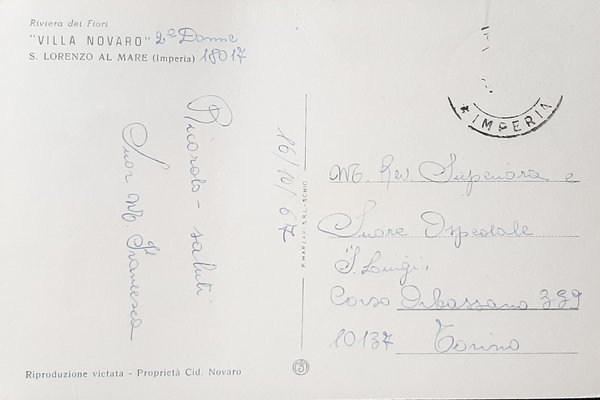 Riviera dei Fiori
"VILLA NOVARO" 2ª Donne
S. LORENZO AL MARE (Imperia) 18017
Ricordo - saluti
Suor M. Francesca
16/10/67
P. MARZARI S.R.L. - SCHIO
* IMPERIA
M. Rev. Superiora e
Suore Ospedale
"S. Luigi"
Corso Orbassano 339
10137 Torino
Riproduzione vietata - Proprietà Cid. Novaro